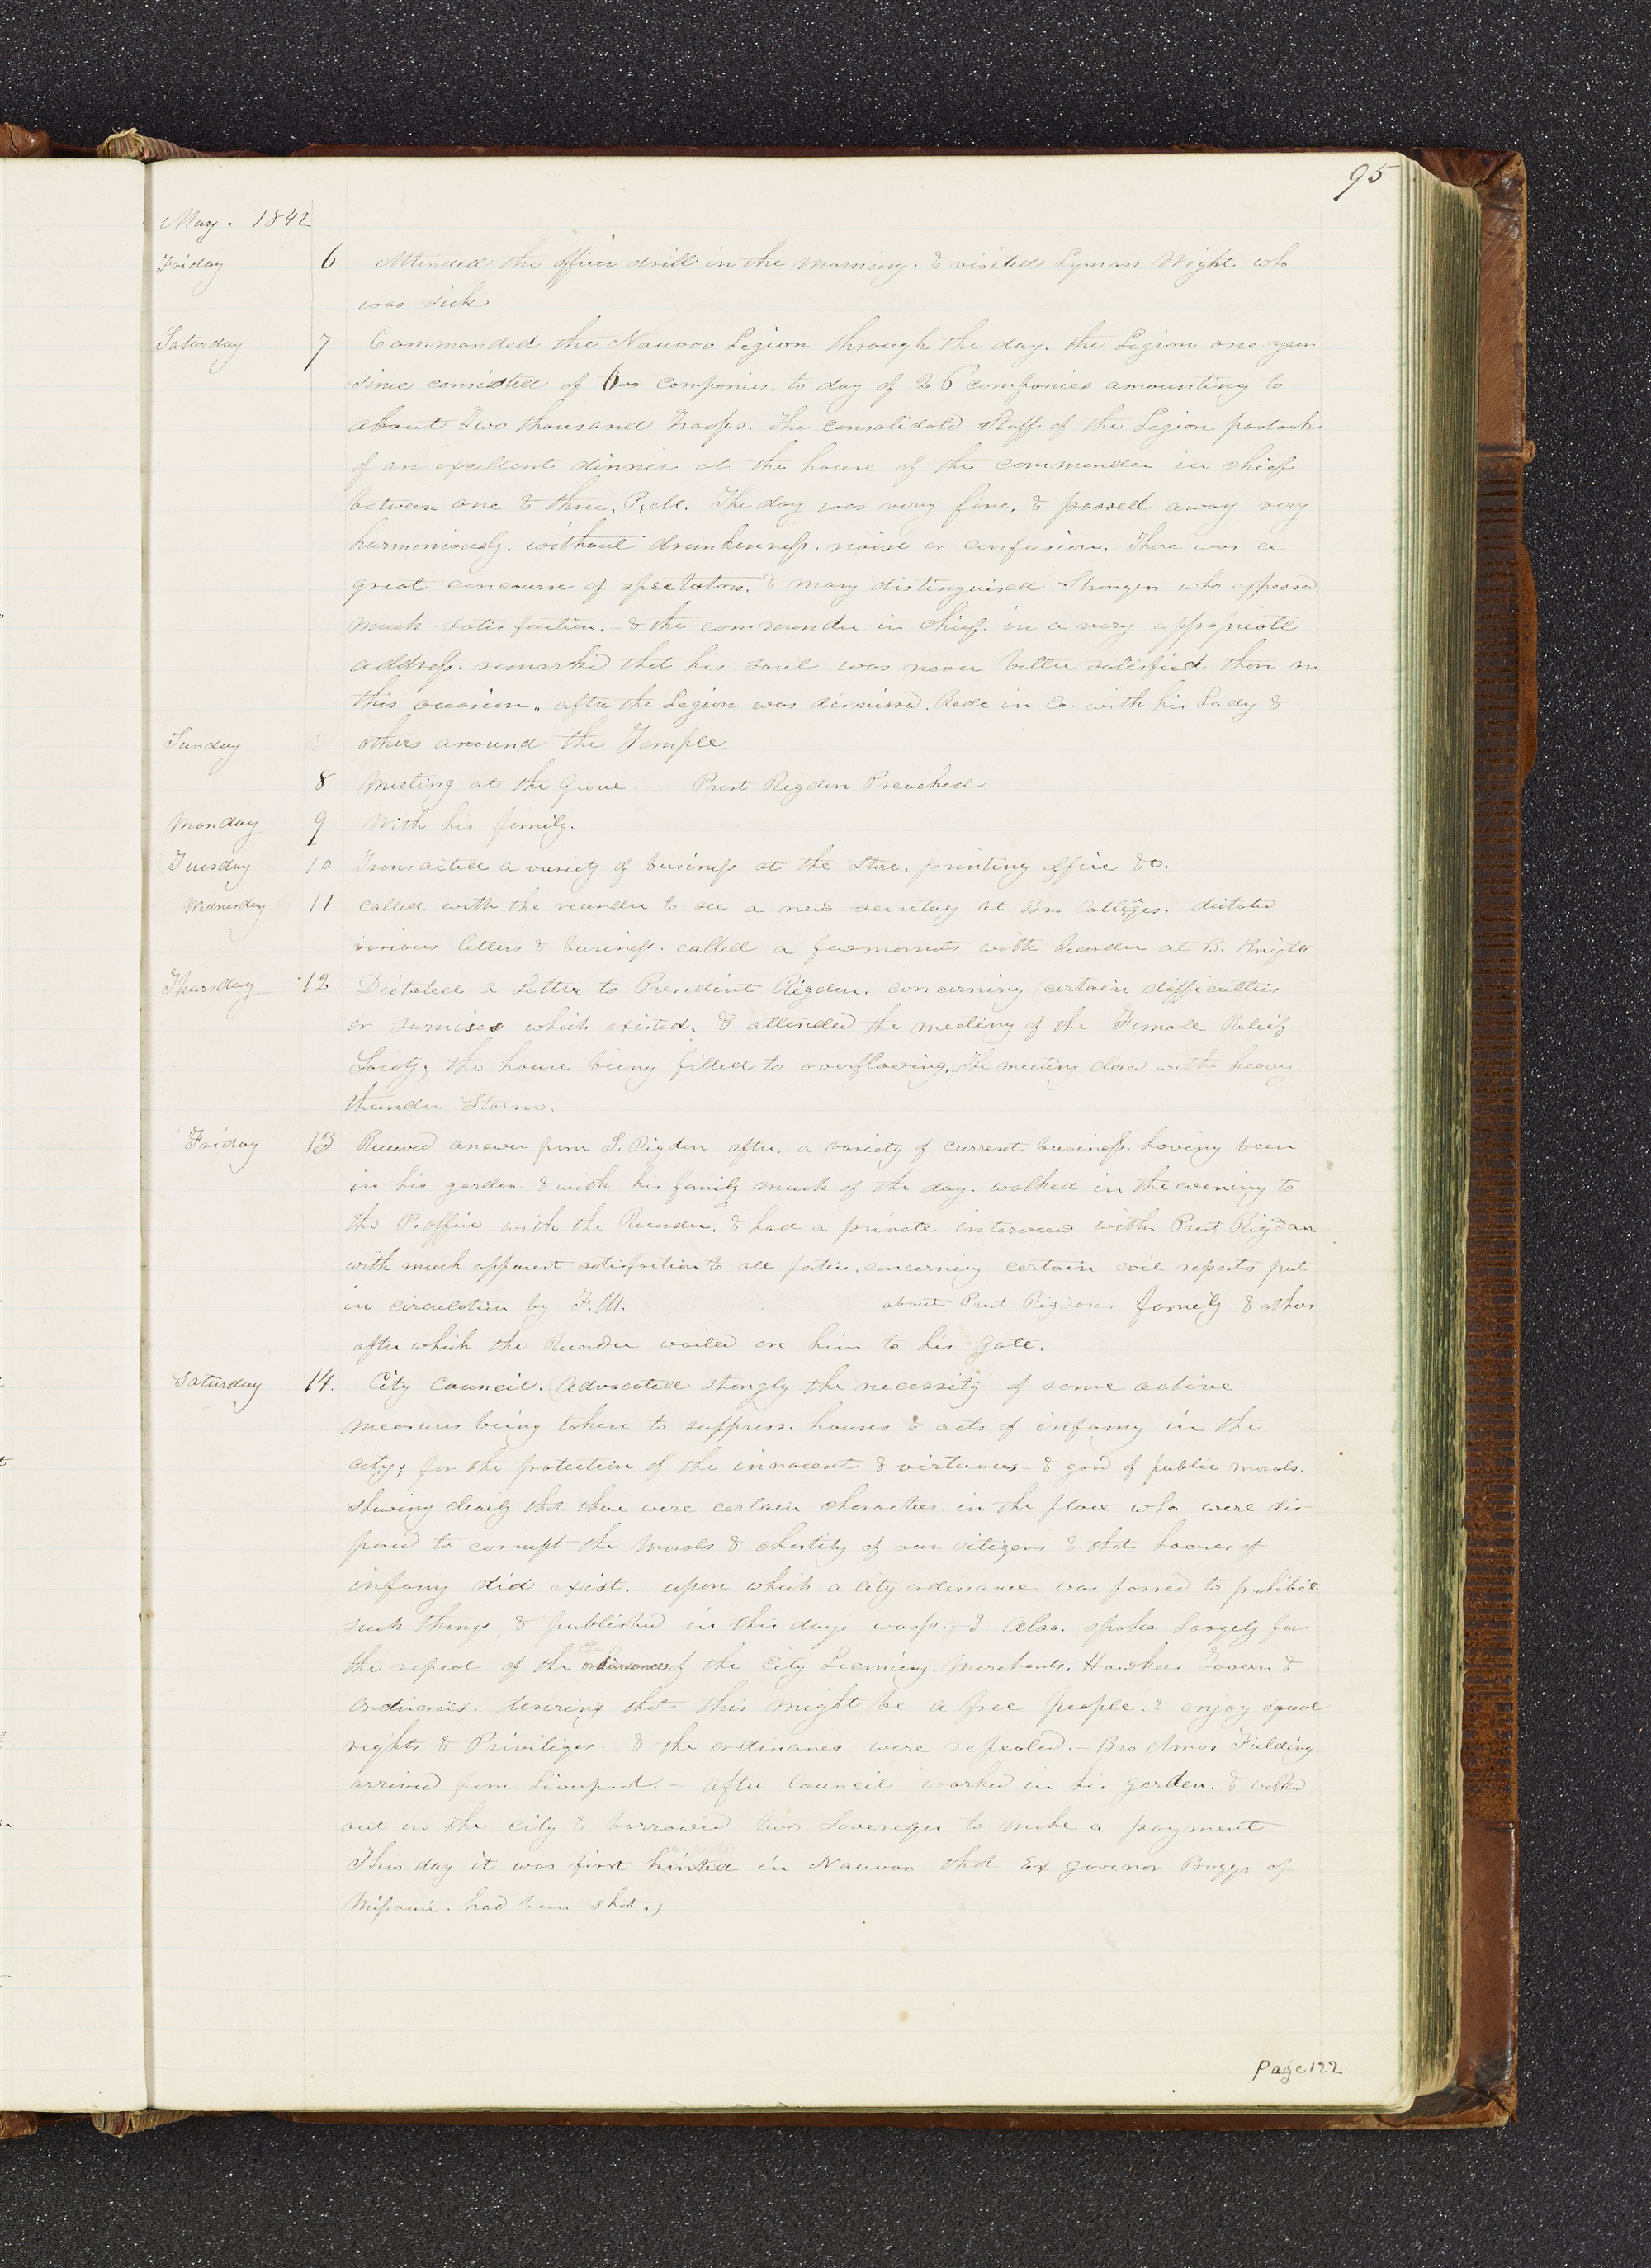 95
May. 1842
Friday 6 Attended the officer drill in the morning. & visited Lyman Wight who
was sick
Saturday 7 Commanded the Nauvoo Legion through the day. the Legion one year
since consisted of companies. to day of 26 companies amounting to
about Two thousand Troops. The consolidatd Staff of the Legion partook
of an excellent dinner at the house of the commander in chief
between one & three, P.M. The day was very fine, & passed away very
harmoniously. without drunkenness. noise or confusion. There was a
great concourse of spectators. & many distinguised Strangers who expressed
much satisfaction. - & the commander in chief. in a very appropriate
address. remarked that his soul was never better satisfied than on
this occasion. after the Legion was dismissed. Rode in Co. with his Lady &
Sunday others around the Temple.
8 Meeting at the Grove. Prest Rigdon Preached
Monday 9 With his family.
Tuesday 10 Transacted a variety of business at the Store. printing office &c.
Wednesday 11 called with the recorder to see a new secretary at Bro dictated
various letters & business. called a few moments with Recorder at B. Knights
Thursday 12 Dictated a Letter to President Rigdon. concerning certain difficulties
or surmises which existed. & attended the meeting of the Female Relief
Society; the house being filled to overflowing. The meeting closed with heavy
thunder Storm.
Friday 13 Received answer from S. Rigdon after. a variety of current business. having been
in his garden & with his family much of the day. walked in the evening to
the P. office with the Recorder. & had a private interveiw with Prest Rigdon
with much apparent satisfaction to all parties. concerning certain evil reports put
in circulation by F. M. about Prest Rigdons family & others
after which the Recorder waited on him to his gate.
Saturday 14. City Council. (Advocated strongly the necessity of some active
measures being taken to suppress. houses & acts of infamy in the
city; for the protection of the innocent & virtuous - & good of public morals.
shewing clearly that there were certain characters. in the place who were dis-
posed to corrupt the morals & chastity of our citizens & that houses of
infamy did exist. upon which a city ordinance was passed to prohibit
such things, & published in this days wasp.) I Also. spoke Largely for
the repeal of the ordinances of the City Licensing. Merchants. Hawkers Tavern &
ordinaries. desiring that this might be a free people. & enjoy equal
rights & Priviliges. & the ordinances were repealed. - Bro Amos Fielding
arrived from Liverpool. - After Council worked in his garden. & walked
out in the city & borrowed two Sovereigns to make a payment
reported
This day it was first hinted in Nauvoo that Ex governor Boggs of
Missouri. had been shot.)
Page 122